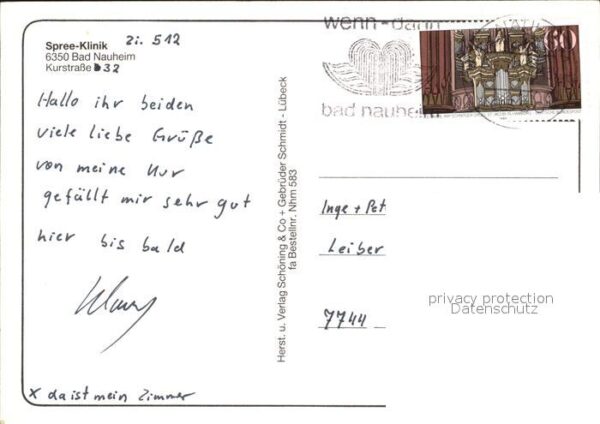 Spree-Klinik
6350 Bad Nauheim
Kurstraße 32
Zi. 512
Hallo ihr beiden
viele liebe Grüße
von meine Kur
gefällt mir sehr gut
hier bis bald
Klaus
x da ist mein Zimmer
Herst. u. Verlag Schöning & Co + Gebrüder Schmidt - Lübeck
fa Bestellnr. Nhm 583
wenn - dann
bad nauheim
60
Inge + Pet
Leiber
7744
privacy protection
Datenschutz